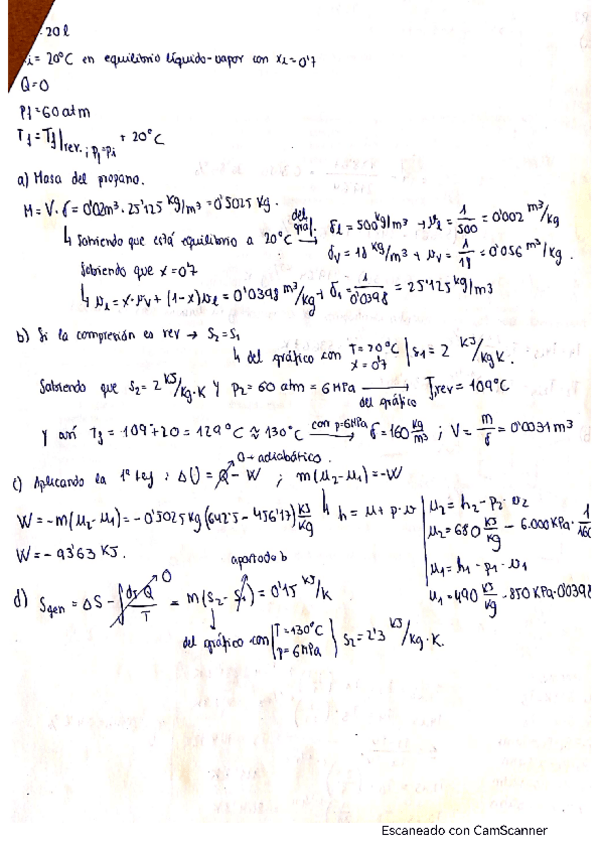 20 l
= 20°C en equilibrio líquido-vapor con x1 = 0'7
Q=0
Pf = 60 atm
Tf = Tf|rev. ; Pf=Pi + 20°C
a) Masa del propano.
M = V·δ = 0'02m³ · 25'125 kg/m³ = 0'5025 kg.
↳ Sabiendo que está equilibrio a 20°C → del gráf. δl = 500 kg/m³ → νl = 1/500 = 0'002 m³/kg
δv = 18 kg/m³ → νv = 1/18 = 0'056 m³/kg.
Sabiendo que x = 0'7
↳ ν1 = x·νv + (1-x)νl = 0'0398 m³/kg → δ1 = 1/0'0398 = 25'125 kg/m³
b) Si la compresión es rev → S2 = S1
↳ del gráfico con T=20°C x=0'7 | s1 = 2 KJ/kg K.
Sabiendo que s2 = 2 KJ/kg·K y P2 = 60 atm = 6 MPa → del gráfico Trev = 109°C
Y así Tf = 109+20 = 129°C ≈ 130°C → con p=6MPa δ = 160 kg/m³ ; V = m/δ = 0'0031 m³
c) Aplicando la 1ª Ley : ΔU = Q - W ; m(u2-u1) = -W
0 → adiabático.
W = -m(u2-u1) = -0'5025 kg (642'5 - 456'17) KJ/kg
↳ h = u + p·ν
u2 = h2 - p2·ν2
u2 = 680 KJ/kg - 6.000 KPa · 1/160
W = - 93'63 KJ.
u1 = h1 - p1·ν1
u1 = 490 KJ/kg - 850 KPa · 0'0398
apartado b
d) Sgen = ΔS - ∫ δQ/T 0 = m(s2 - s1) = 0'15 KJ/K
↓ del gráfico con T = 130°C p = 6 MPa } s2 = 2'3 KJ/kg·K.
Escaneado con CamScanner